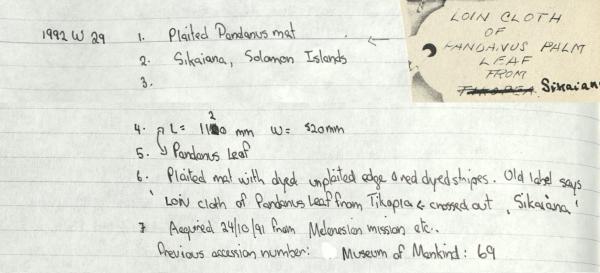 1992 W 29
1. Plaited Pandanus mat
2. Sikaiana, Solomon Islands
3.
LOIN CLOTH
OF
PANDANUS PALM
LEAF
FROM
TIKOPIA Sikaian
4. L= 1120 mm W= 520mm
5. Pandanus Leaf
6. Plaited mat with dyed unplaited edge and red dyed stripes. Old label says
'Loin cloth of Pandanus Leaf from Tikopia ← crossed out, Sikaiana'
7 Acquired 24/10/91 from Melanesian mission etc..
Previous accession number: Museum of Mankind: 69